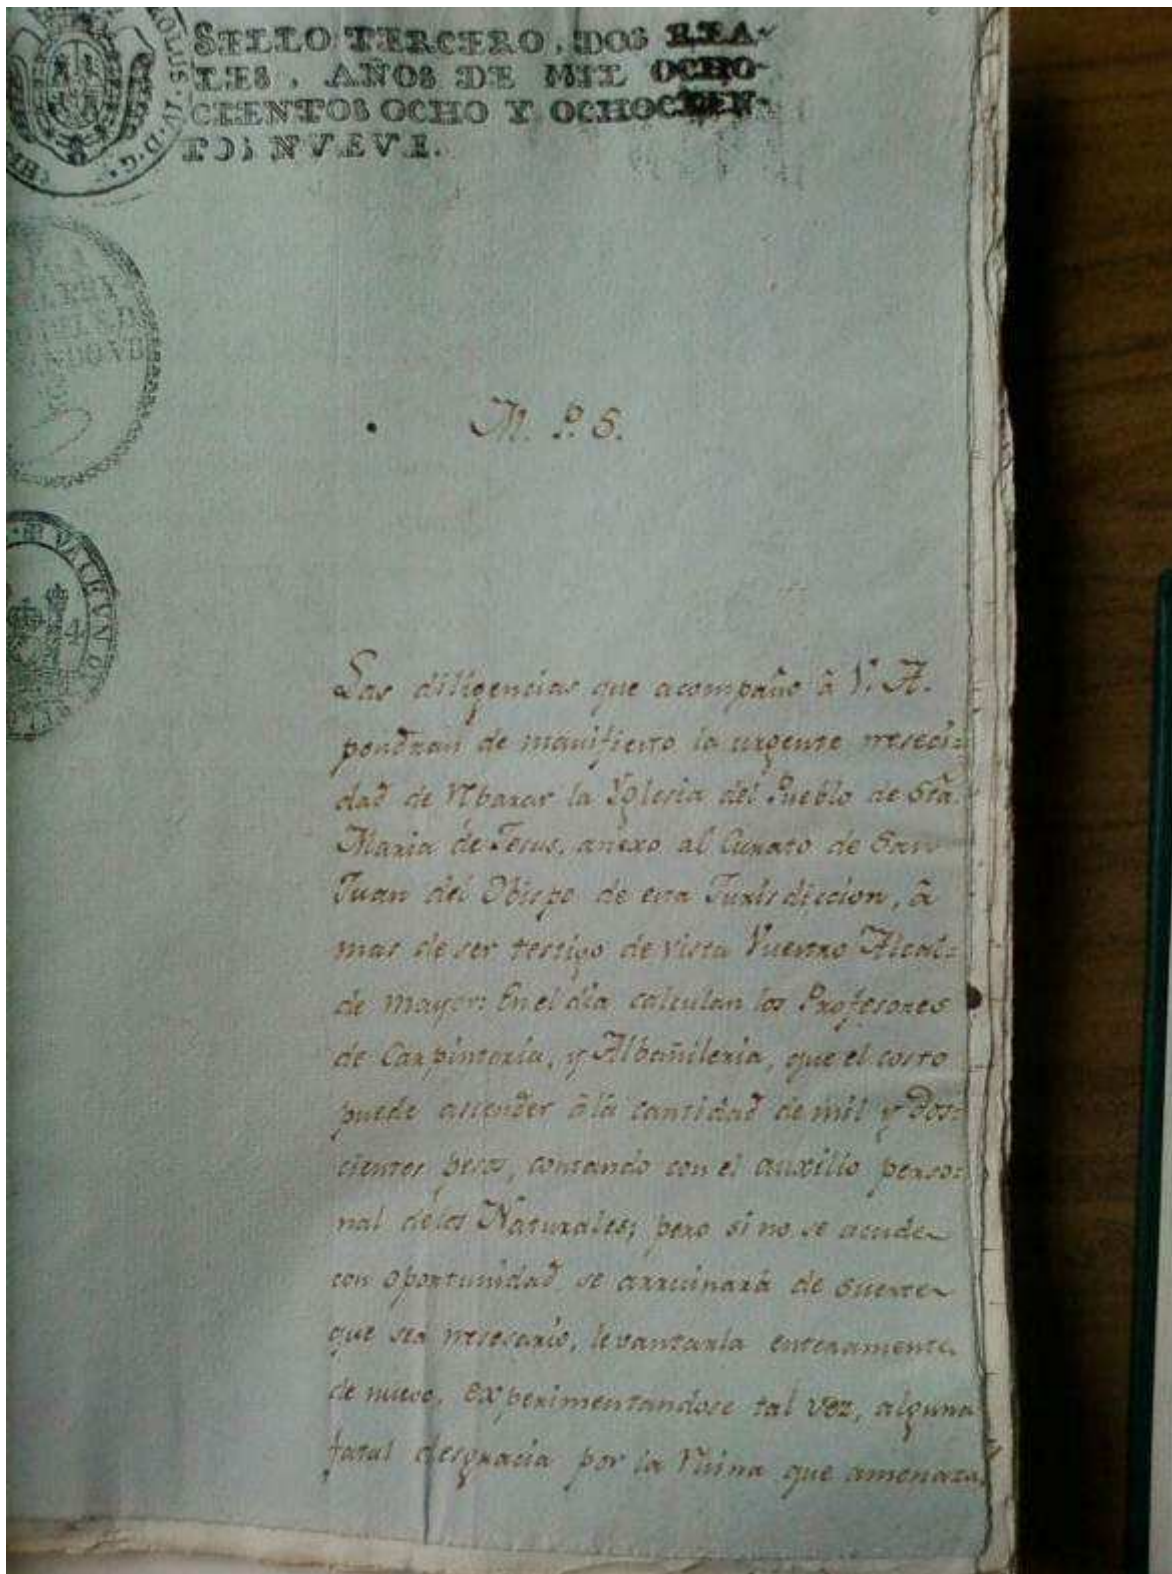 SELLO TERCERO, DOS REA-
LES, AÑOS DE MIL OCHO-
CIENTOS OCHO Y OCHOCIEN-
TOS NVEVE.
N.º 5.
Las diligencias que acompaño â V. A.
pondran de manifiesto la urgente neseci=
dad de rebaxar la Yglesia del Pueblo de Sta.
Maria de Jesus, anexo al Curato de San
Juan del Obispo de esta Jurisdiccion, â
mas de ser testigo de vista Vuestro Alcal=
de mayor: En el dia calculan los Profesores
de Carpinteria, y Albañileria, que el costo
puede asender â la cantidad de mil y Dos=
cientos pesos, contando con el auxilio perso=
nal delos Naturales; pero si no se acude
con oportunidad se arruinará de suerte
que sea nesesario, levantarla enteramente
de nuevo, experimentandose tal vez, alguna
fatal desgracia por la Ruina que amenaza,